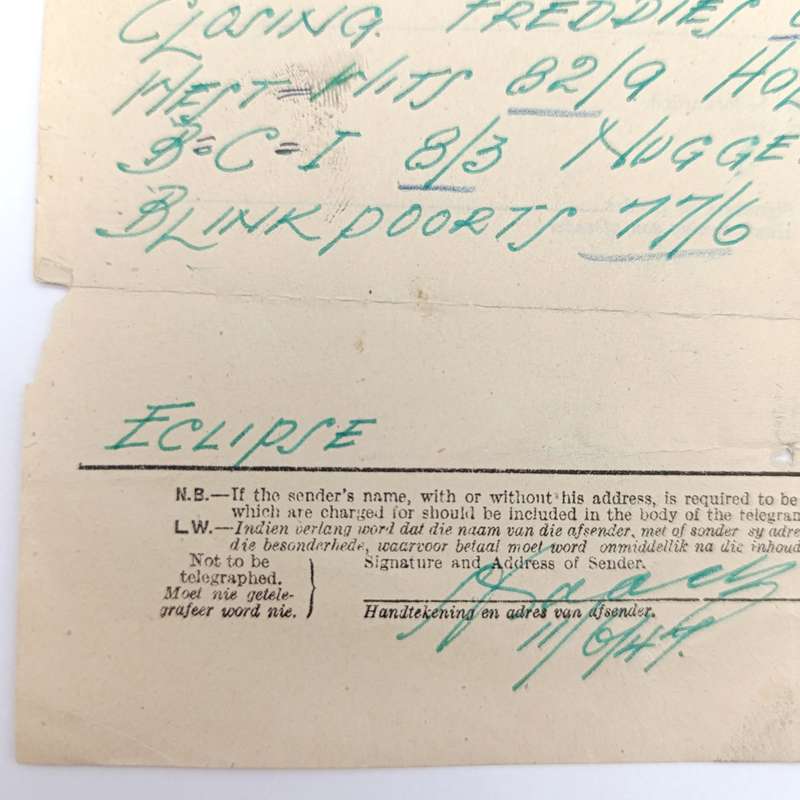 CLOSING FREDDIES
WEST=WITS 82/9 HOL
B=C=I 8/3 NUGGE
BLINKPOORTS 77/6
ECLIPSE
N.B.—If the sender's name, with or without his address, is required to be
which are charged for should be included in the body of the telegram
L.W.—Indien verlang word dat die naam van die afsender, met of sonder sy adre
die besonderhede, waarvoor betaal moet word onmiddellik na die inhoud
Not to be
telegraphed.
Moet nie getele-
grafeer word nie.
Signature and Address of Sender.
Handtekening en adres van afsender.